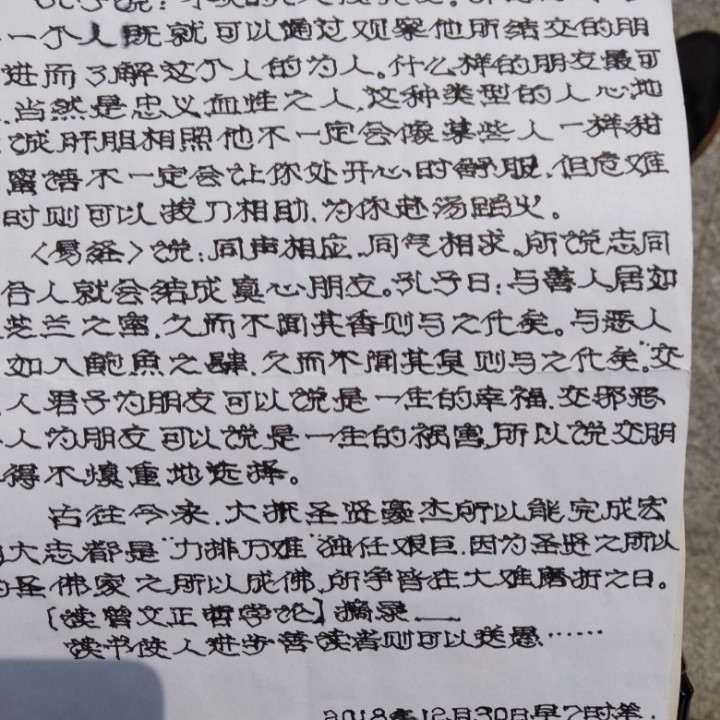 一个人既就可以通过观察他所结交的朋
进而了解这个人的为人。什么样的朋友最可
当然是忠义血性之人,这种类型的人心地
诚肝胆相照他不一定会像某些人一样甜
蜜语不一定会让你处开心时舒服,但危难
时则可以拔刀相助,为你赴汤蹈火。
《易经》说:同声相应,同气相求。所说志同
合人就会结成真心朋友。孔子曰:与善人居如
芝兰之室,久而不闻其香则与之化矣。与恶人
如入鲍鱼之肆,久而不闻其臭则与之化矣。"交
人君子为朋友可以说是一生的幸福,交邪恶
人为朋友可以说是一生的祸害,所以说交朋
得不慎重地选择。
古往今来,大抵圣贤豪杰所以能完成宏
大志都是"力排万难"独任艰巨,因为圣贤之所以
圣佛家之所以成佛,所争皆在大难磨折之日。
〔读曾文正哲学论〕摘录——
读书使人进步善读者则可以医愚……
2018年12月30日早7时